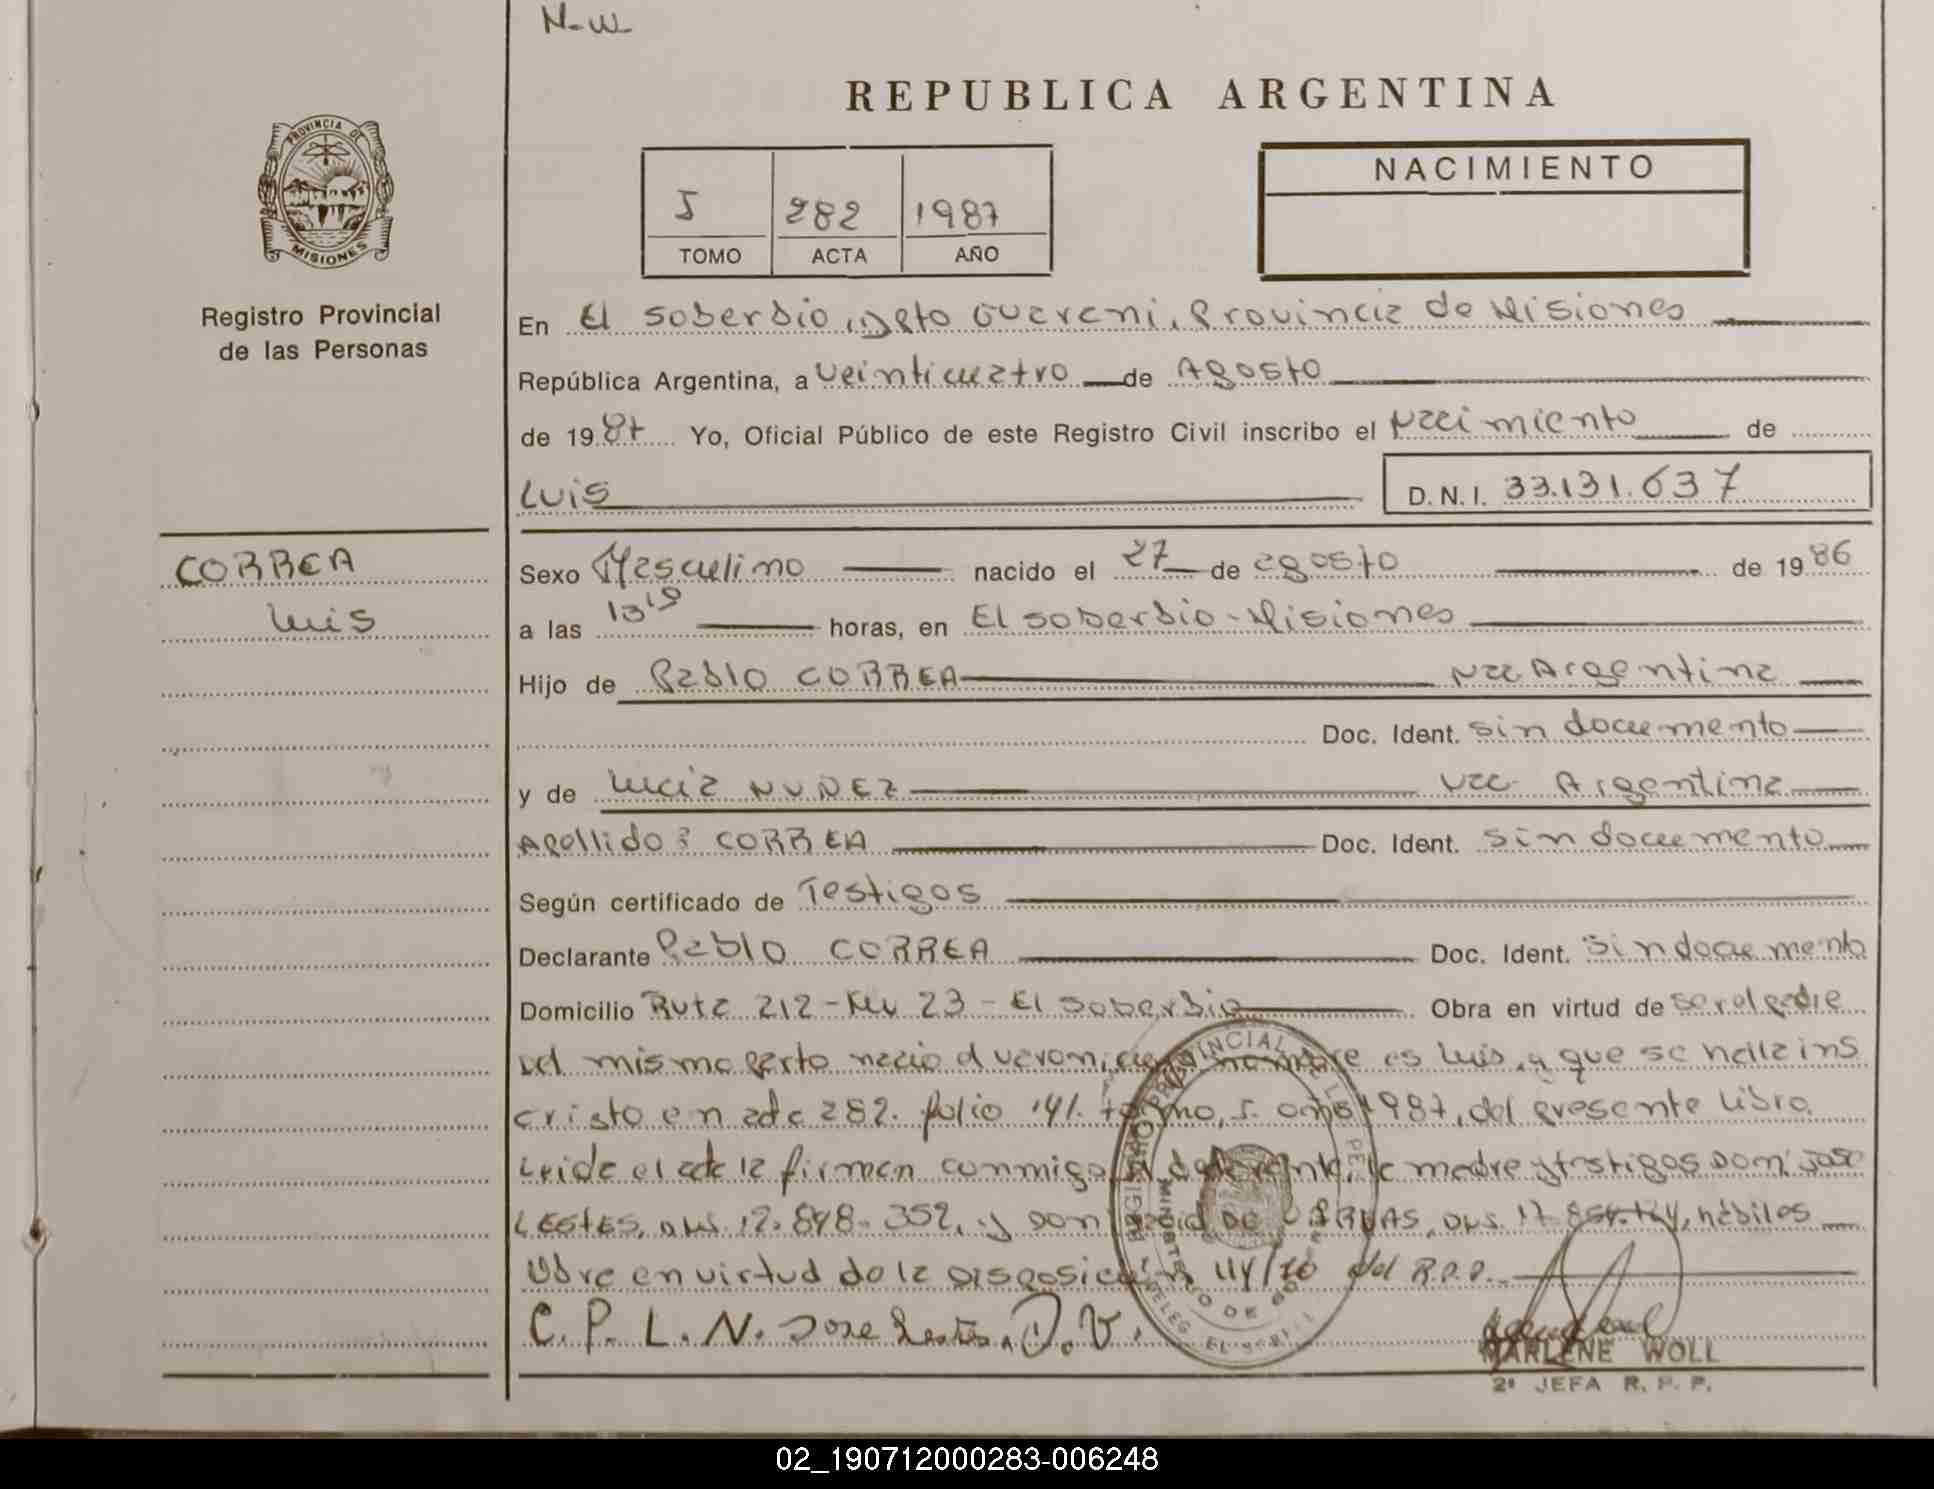 N-W
REPUBLICA ARGENTINA
PROVINCIA DE
MISIONES
NACIMIENTO
282 1987
TOMO ACTA AÑO
Registro Provincial
de las Personas
En El Soberbio, Dpto Guarani, Provincia de Misiones
República Argentina, a Veinticuatro de Agosto
de 1987 Yo, Oficial Público de este Registro Civil inscribo el Nacimiento de
Luis D.N.I. 33.131.637
CORREA
Luis
Sexo Masculino nacido el 27 de agosto de 1986
a las horas, en El Soberbio - Misiones
Hijo de Pablo CORREA Nac Argentina
Doc. Ident. sin documento
y de Lucia NUÑEZ Nac Argentina
Apellido: CORREA Doc. Ident. sin documento
Según certificado de Testigos
Declarante Pablo CORREA Doc. Ident. sin documento
Domicilio Ruta 212 - Km 23 - El Soberbio Obra en virtud de ser el padre
Del mismo parto nacio nombre es Luis, y que se halla ins
cristo en acta 282. folio 141. tomo, año 1987, del presente Libro.
Leida el acta la firman conmigo el declarante, la madre y testigos Don: Jose
LESTES, y Don DE hábiles
Obra en virtud de la Disposición del R.P.P.
C. P. L. N. Jose Lestes. D. V.
MARLENE WOLL
2ª JEFA R. P. P.
02_190712000283-006248